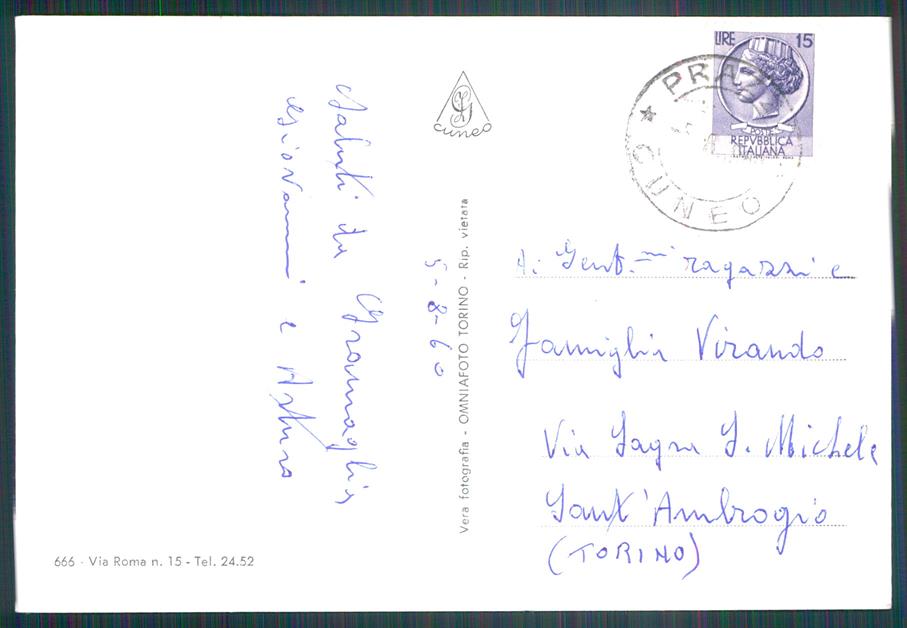 Saluti da Gramaglia
Giovanni e Arturo
5-8-60
GF
cuneo
Vera fotografia - OMNIAFOTO TORINO - Rip. vietata
666 - Via Roma n. 15 - Tel. 24.52
LIRE 15
POSTE
REPVBBLICA
ITALIANA
CUNEO
Ai Gent.mi ragazzi e
Famiglia Virando
Via Sagra S. Michele
Sant'Ambrogio
(TORINO)